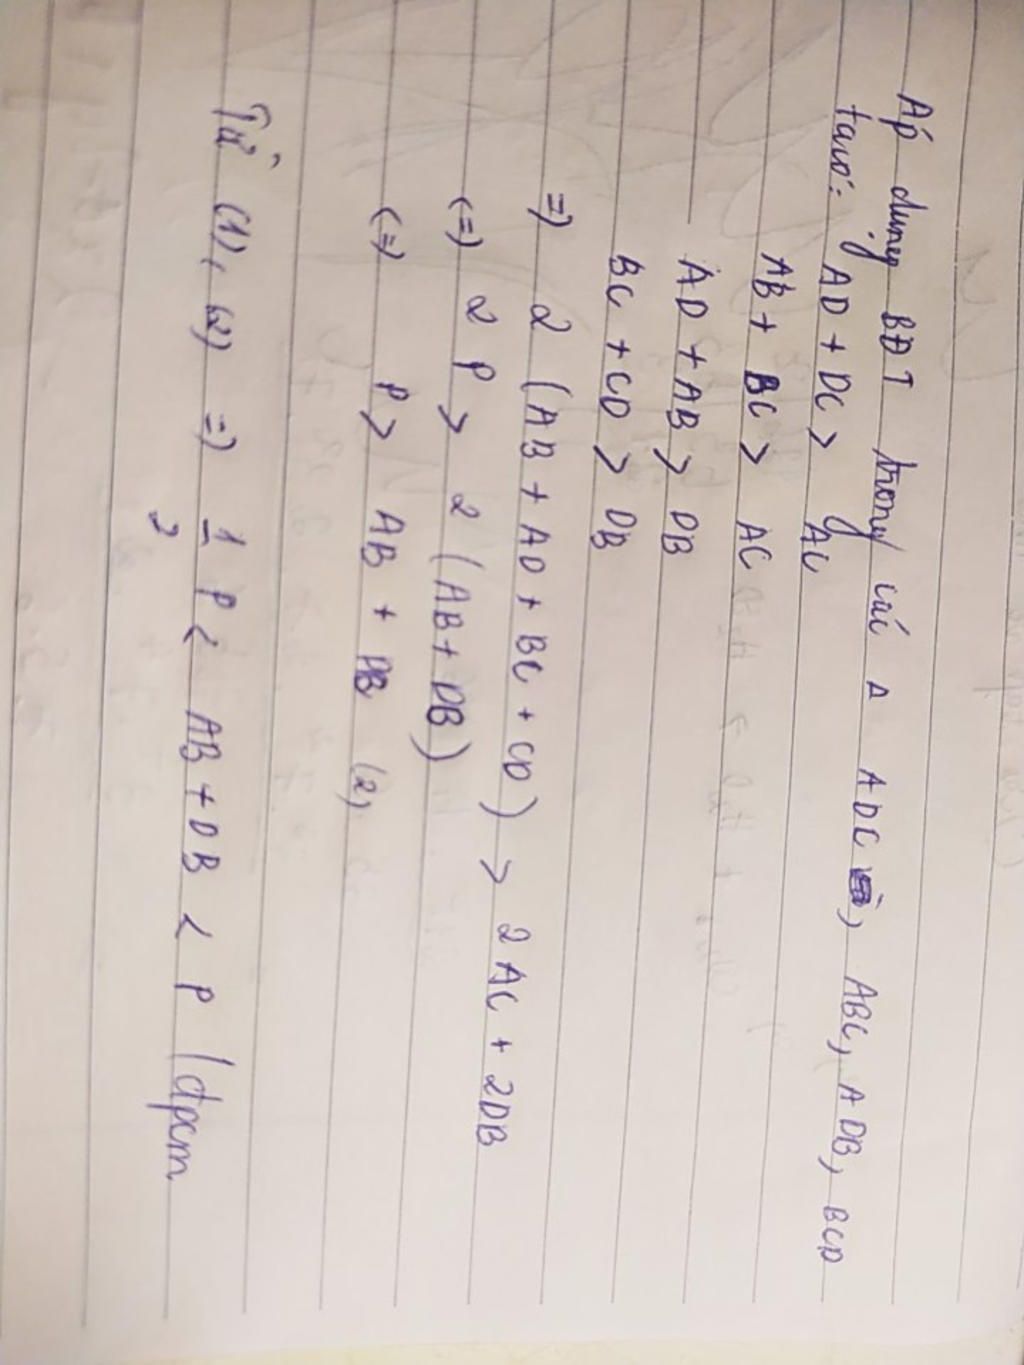 Áp dụng BĐT trong các Δ ADC, ABC, ADB, BCD
ta có: AD + DC > AC
AB + BC > AC
AD + AB > DB
BC + CD > DB
=) 2 (AB + AD + BC + CD) > 2AC + 2DB
(=) 2 P > 2 (AB + DB)
(=) P > AB + DB (2)
Từ (1), (2) =) 1/2 P < AB + DB < P (đpcm